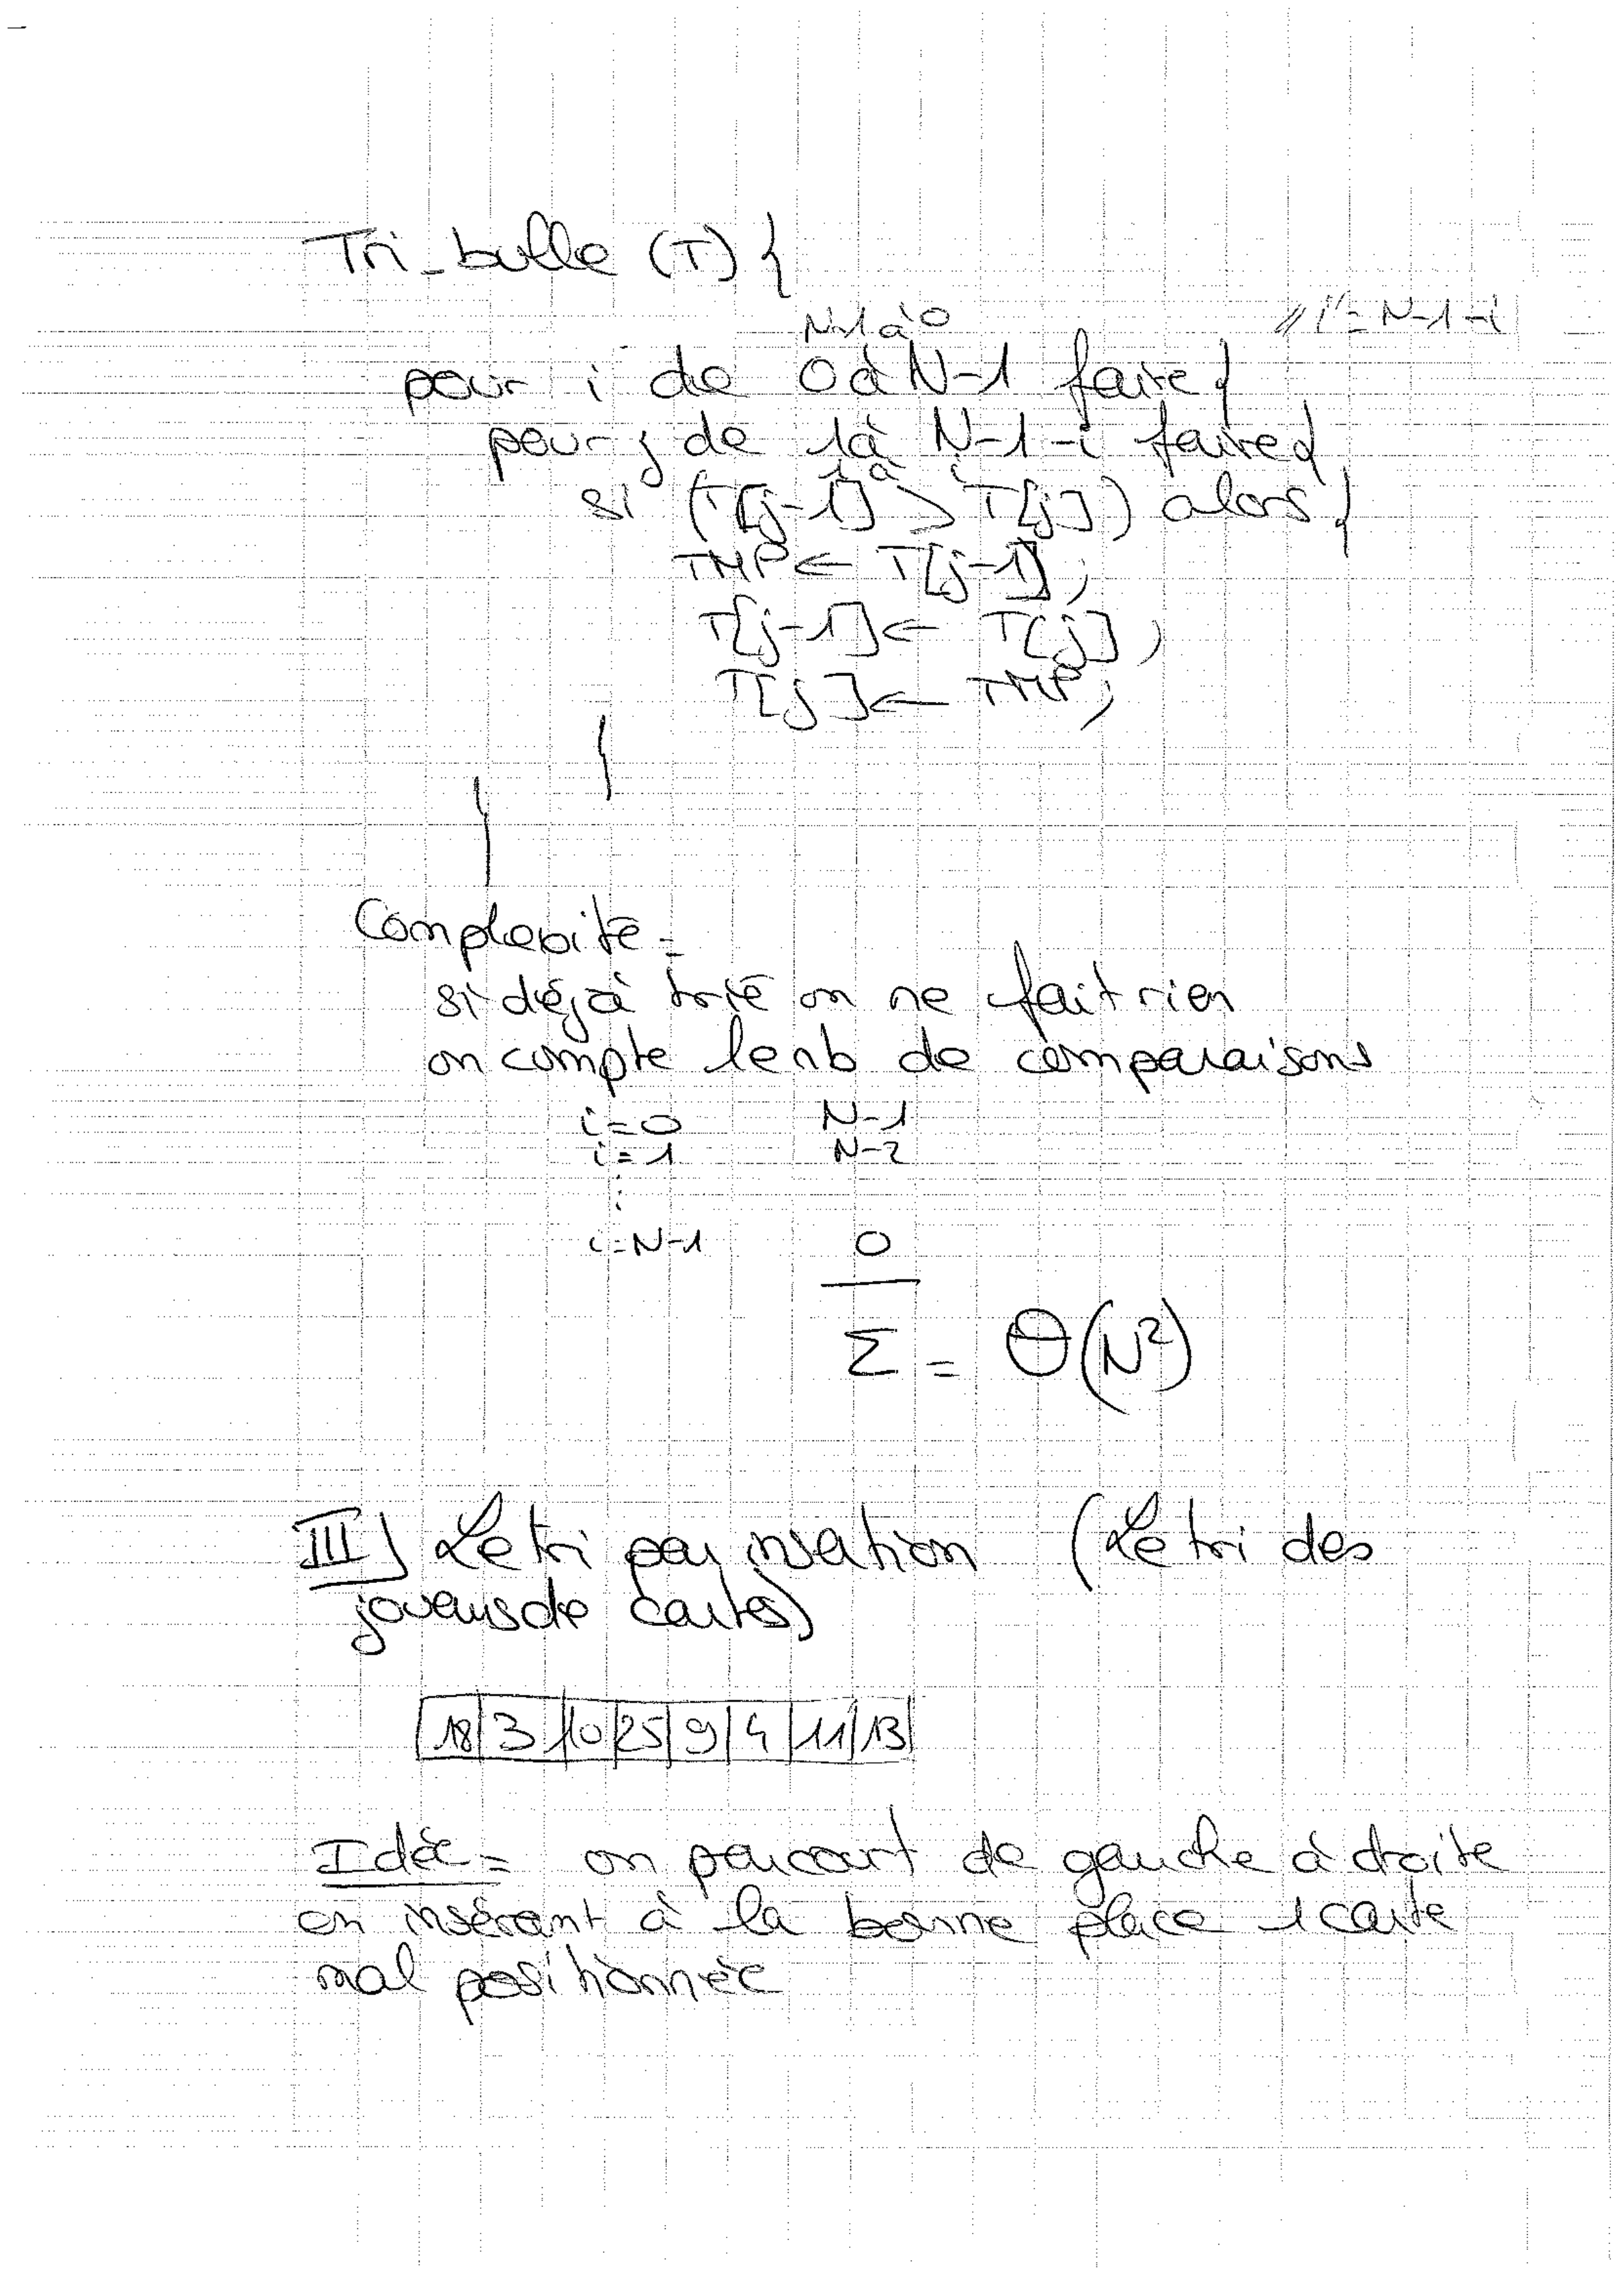 Tri_bulle (T) {
N-1 à 0 // i'= N-1-i
pour i de 0 à N-1 faire {
pour j de 1 à N-1-i faire {
1 à i
si (T[j-1] > T[j]) alors {
TMP ← T[j-1];
T[j-1] ← T[j];
T[j] ← TMP;
}
}
Complexité =
si déjà trié on ne fait rien
on compte le nb de comparaisons
i=0 N-1
i=1 N-2
⋮
i=N-1 0
Σ = Θ(N²)
III) Le tri par insertion (Le tri des
joueurs de cartes)
18 | 3 | 10 | 25 | 9 | 4 | 11 | 13
Idée = on parcourt de gauche à droite
en insérant à la bonne place 1 carte
mal positionnée